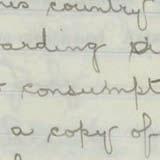 country
arding
consumpt
a copy of